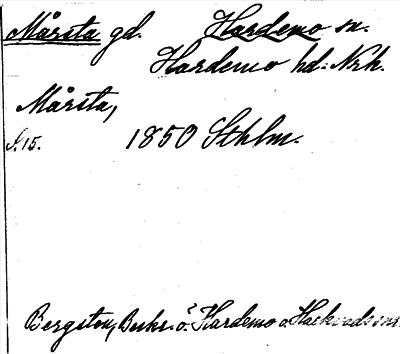 Mårsta gd. Hardemo sn.
Hardemo hd. Nrk.
Mårsta,
S. 15. 1850 Sthlm.
Bergsten, Beskr. ö. Hardemo o. Hackvads snr